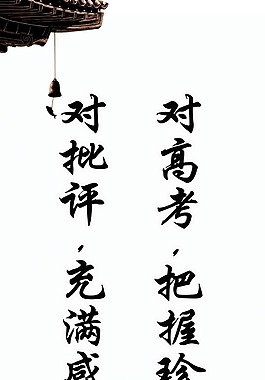 对高考，把握珍
对批评，充满感